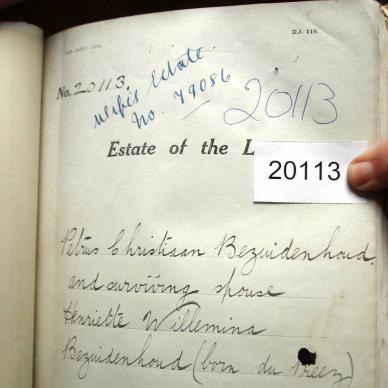 D.J. 115.
No. 20113.
Wife's Estate
No. 79086
20113
Estate of the L
20113
Petrus Christiaan Bezuidenhoud.
and surviving spouse
Henriette Willemina
Bezuidenhoud (born du Preez)